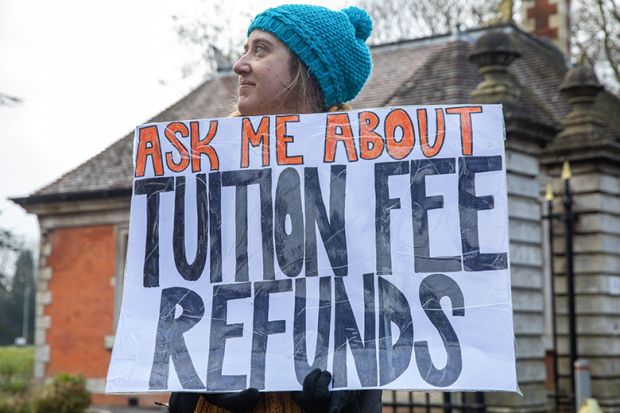 ASK ME ABOUT
TUITION FEE
REFUNDS